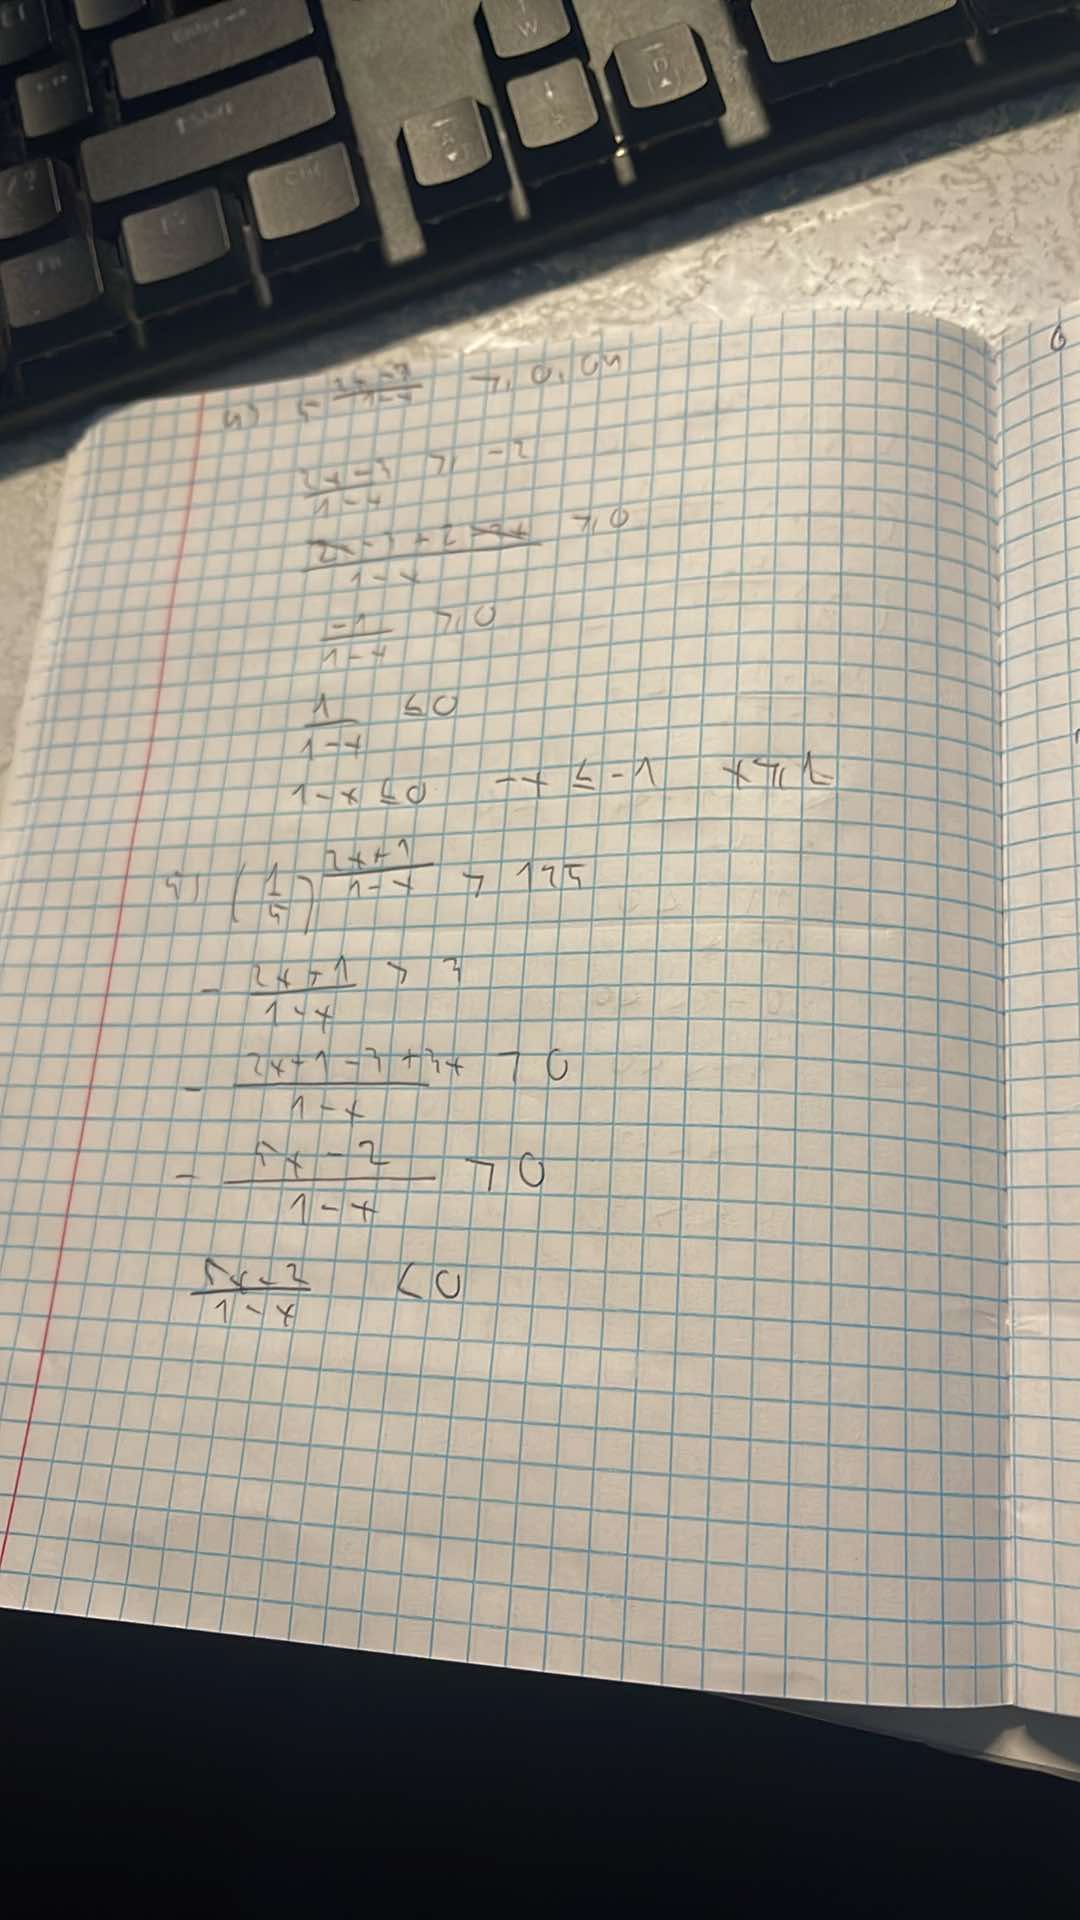 4) 5^{\frac{2x-3}{1-x}} ≥ 0,04
\frac{2x-3}{1-x} ≥ -2
\frac{2x-3+2-2x}{1-x} ≥ 0
\frac{-1}{1-x} ≥ 0
\frac{1}{1-x} ≤ 0
1-x ≤ 0 -x ≤ -1 x ≥ 1
5) (\frac{1}{5})^{\frac{2x+1}{1-x}} > 125
- \frac{2x+1}{1-x} > 3
- \frac{2x+1-3+3x}{1-x} > 0
- \frac{5x-2}{1-x} > 0
\frac{5x-2}{1-x} < 0